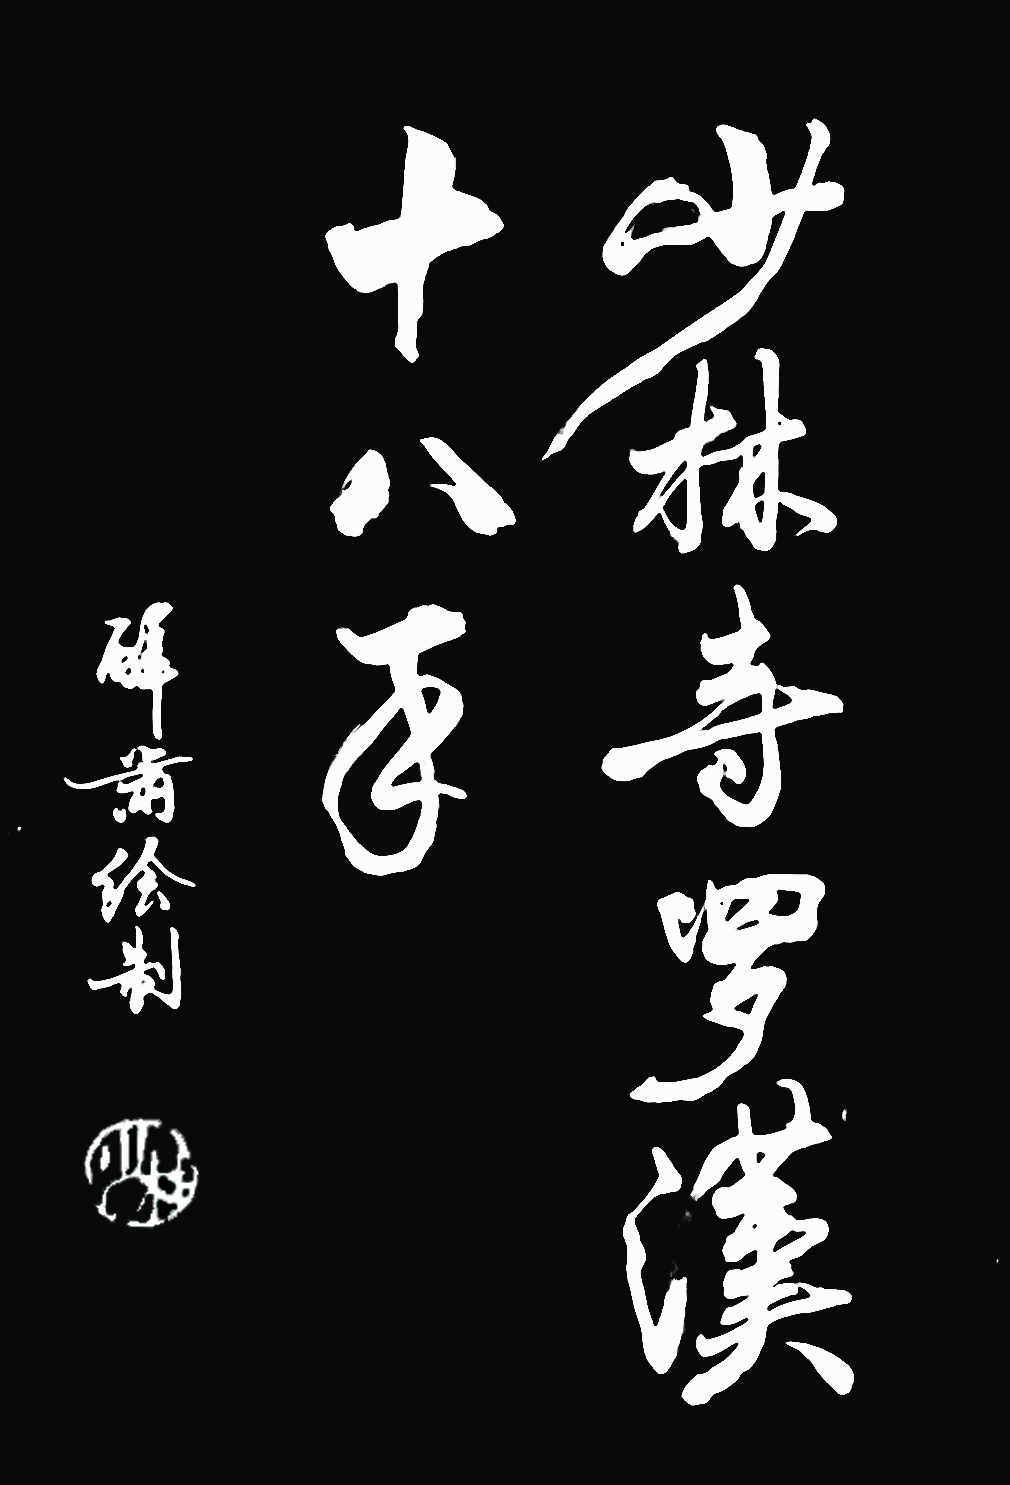 少林寺罗漢
十八手
薛肅绘制